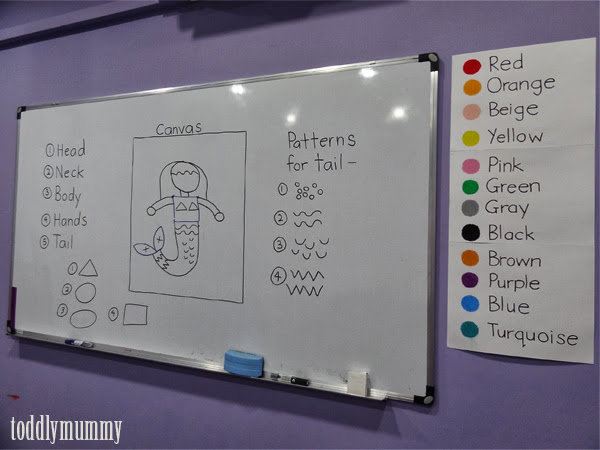 Canvas
① Head
② Neck
③ Body
④ Hands
⑤ Tail
①
②
③
④
Patterns
for tail-
①
②
③
④
Red
Orange
Beige
Yellow
Pink
Green
Gray
Black
Brown
Purple
Blue
Turquoise
toddlymummy